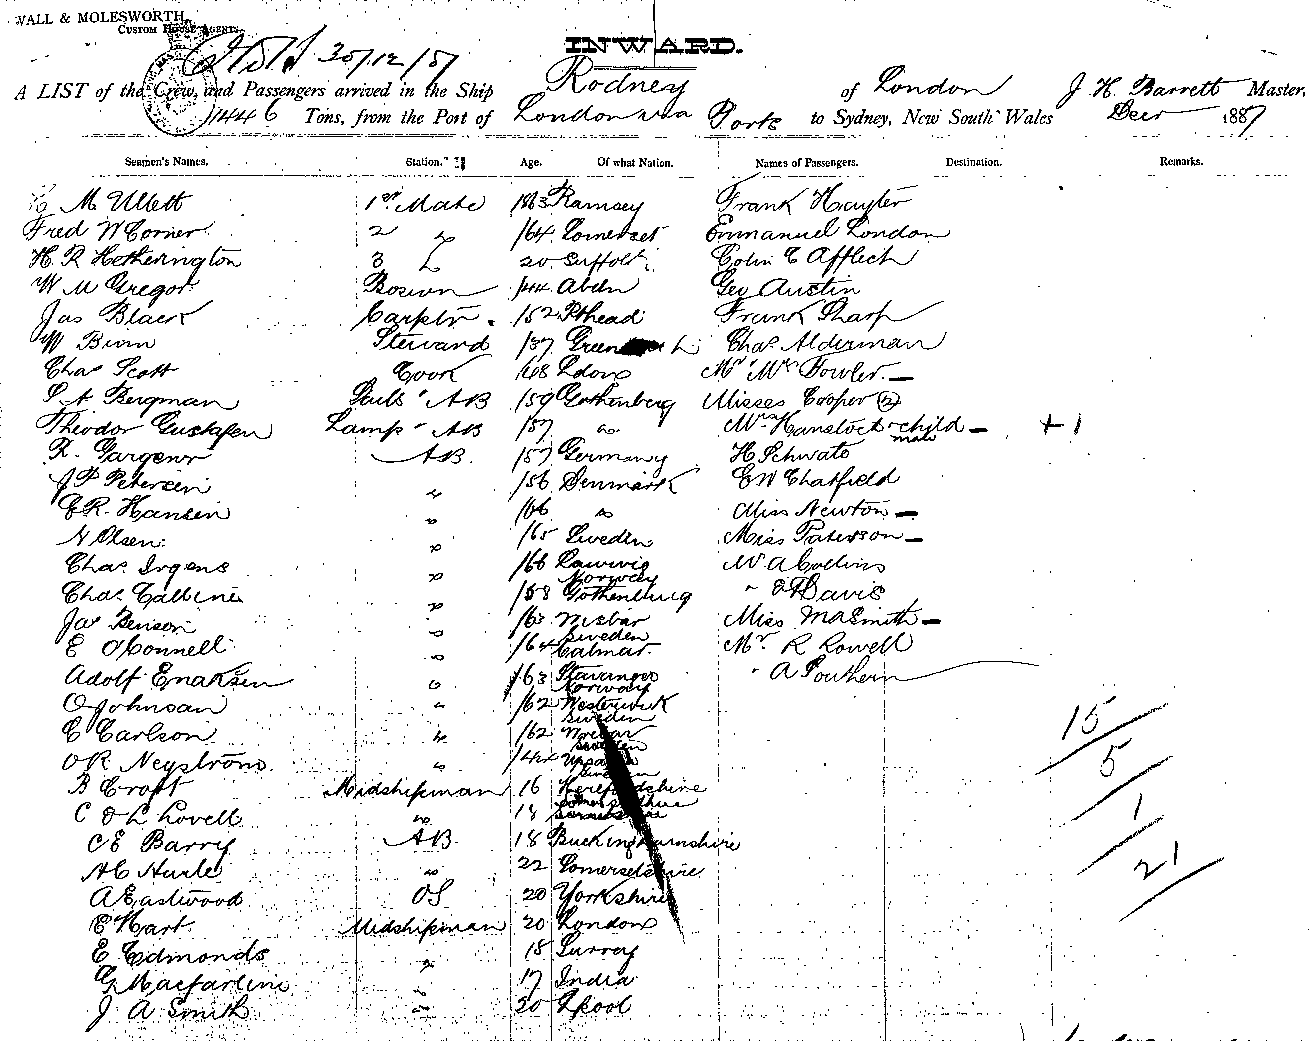 WALL & MOLESWORTH,
CUSTOM HOUSE AGENTS.
30/12/87
INWARD.
A LIST of the Crew, and Passengers arrived in the Ship Rodney of London J. H. Barrett Master,
1446 Tons, from the Port of London via Ports to Sydney, New South Wales Decr 1887
Seamen's Names. Station. Age. Of what Nation. Names of Passengers. Destination. Remarks.
C M Ullett 1st Mate 1863 Ramsey Frank Hayter
Fred W Corner 2 " /64 Somerset Emmanuel London
H. R Hetherington 3 " 20 Suffolk Colin C Affleck
W McGregor Boswn /44 Abdn Geo Austin
Jas Black Carptr. /52 Pthead Frank Sharp
W Burn Steward /37 Chas Alderman
Chas Scott Cook /48 Ldon Mr Mrs Fowler. —
S. A Bergman Sails AB /59 Gothenberg Misses Cooper (2)
Theodor Gustafsen Lamps AB /57 do Mrs Hanslock child —
male + 1
AB. /57 Germany H Schwatz
J P Petersen " /56 Denmark E W Chatfield
C R. Hansen " /66 do Miss Newton —
N Olsen " /65 Sweden Miss Paterson —
Chas Irgens " /66 Laurvig Mr A Collins
Norway
Chas " /58 Gothenburg " Davis
Jas Benson " /63 Miss M A Smith —
Sweden
E O'Connell " /64 Calmar. Mr R Rowell
Adolf " /63 Stavanger " A Southern
Norway
O Johnson " /62 Westerwick
Sweden
C Carlson " /62
Sweden
O R Neystrom " /44 Upsala
Sweden
B Croft Midshipman 16 Herefordshire
C & L Lovell " 18 Somersetshire
C E Barry AB 18 Buckinghamshire
A C Hurle " 22 Somersetshire
A Eastwood OS 20 Yorkshire
E Hart Midshipman 20 London
E Edmonds " 18 Surrey
G Macfarline " 17 India
J A Smith " 20 Lpool
15
5
1
21